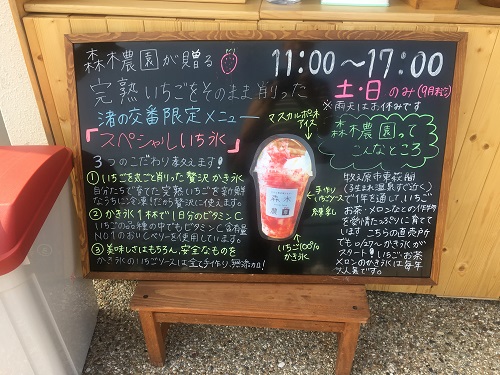 森木農園が贈る
完熟いちごをそのまま削った
渚の交番限定メニュー
「スペシャルいち氷」
3つのこだわり教えます!
① いちごを丸ごと削った贅沢かき氷
自分たちで育てた完熟いちごを新鮮
なうちに冷凍!だから使えます。
② かき氷1杯で1日分のビタミンC
いちごの品種の中でもビタミンC含有量
NO1のおいCベリーを使用しています。
③ 美味しさはもちろん、安全なものを
かき氷のいちごソースは全て手作り、無添加!
マスカルポーネ
アイス
森木
農園
手作り
いちごソース
いちご100%
かき氷
11:00〜17:00
土・日のみ(9月まで)
※雨天はお休みです
森木農園って
こんなところ
牧之原市東萩間
(さがら温泉すぐ近く)
で1年を通して、いちご
お茶・メロンなどの作物
を愛情たっぷりに育てて
います こちらの直売所
でも かき氷が
スタート!いちご お茶
メロンのかき氷は毎年
大人気です。